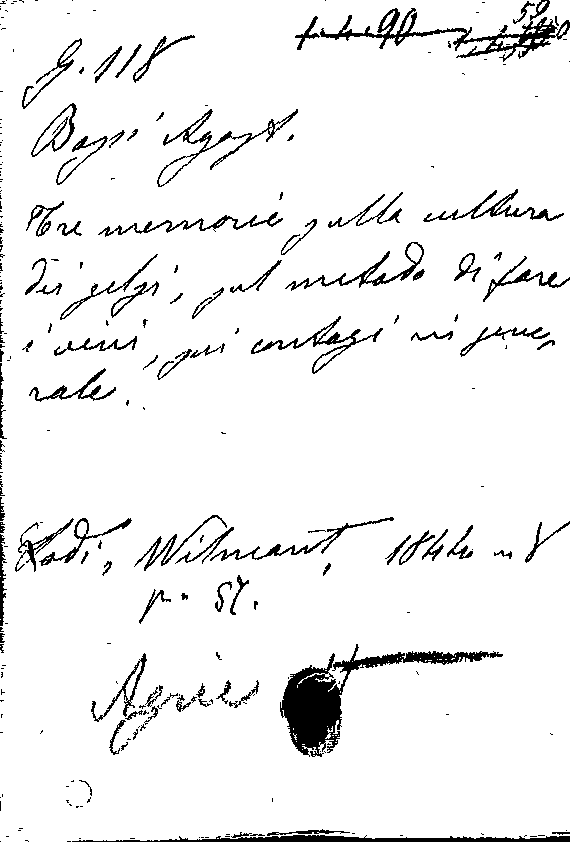 1.1.90
G. 118
Bassi Agost.
Tre memorie sulla cultura
dei gelsi, sul metodo di fare
i vini, sui contagi in gene,
rale.
Lodi, Wilmant, 1844 in 8
p. 57.
Agric